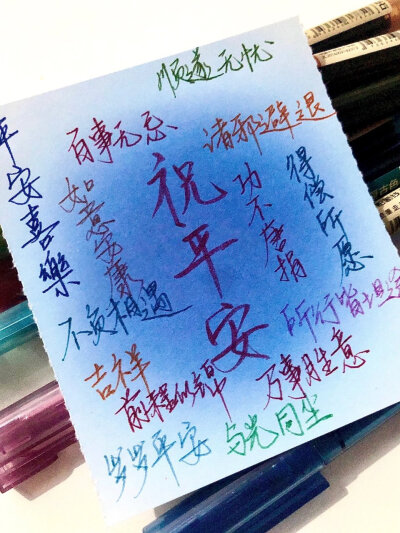 顺遂无忧
百事无忌
诸邪避退
平安喜樂
如意安康
祝平安
功不唐捐
得偿所愿
不负相遇
所行皆坦途
吉祥
前程似锦
万事胜意
岁岁平安
与光同尘